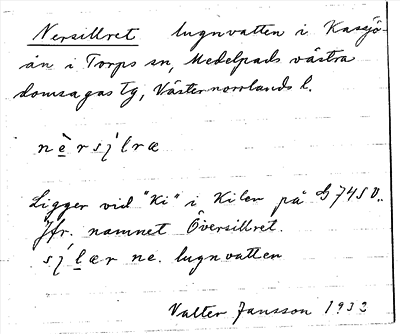 Nersillret lugnvatten i Kassjö-
ån i Torps sn, Medelpads västra
domsagas tg, Västernorrlands l.
nèrsįlræ
Ligger vid "Ki" i Kilen på G 74 SO..
Jfr. namnet Översillret.
sįlær ne. lugnvatten
Valter Jansson 1933